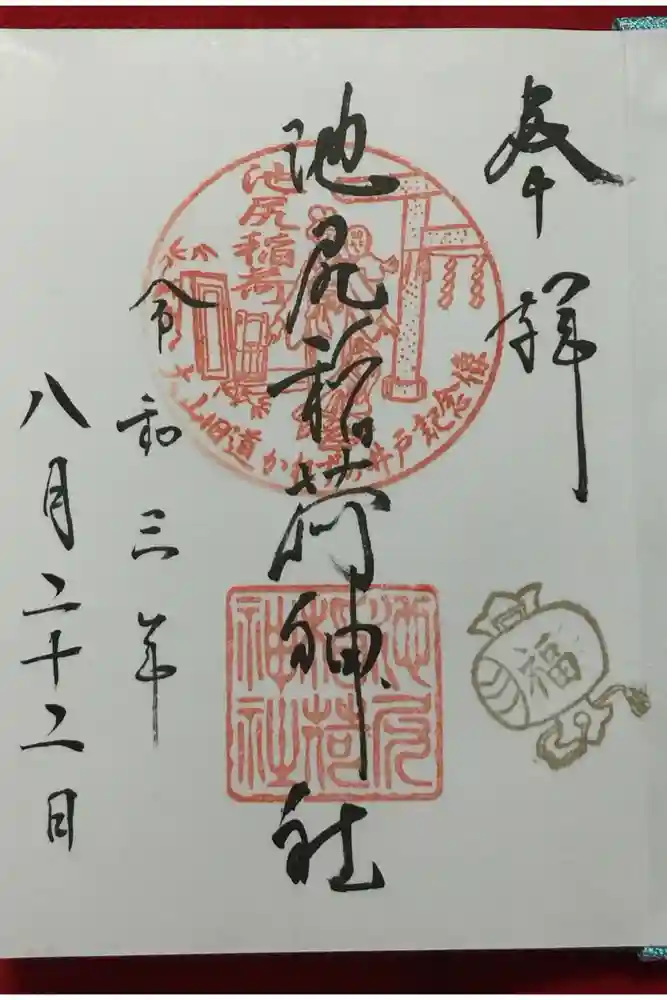 奉拝
池尻稲荷神社
令和三年
八月二十二日
池尻稲荷
大山旧道かれずの井戸記念像
池尻
稲荷
神社
福